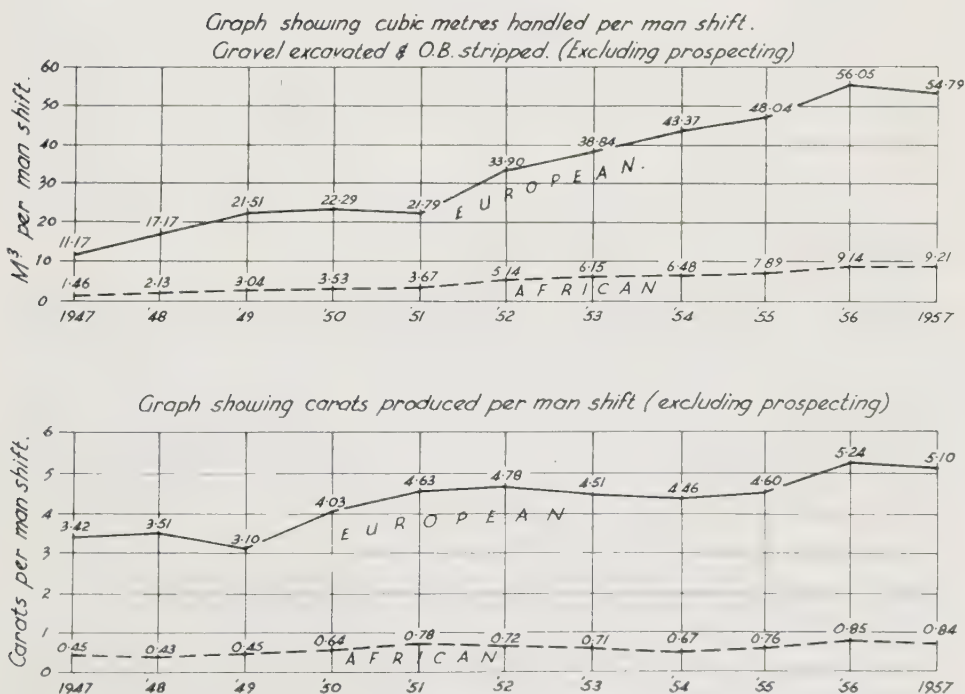 Graph showing cubic metres handled per man shift.
Gravel excavated & O.B. stripped. (Excluding prospecting)
M³ per man shift.
60
50
40
30
20
10
0
11·17
17·17
21·51
22·29
21·79
33·90
38·84
43·37
48·04
56·05
54·79
EUROPEAN.
1·46
2·13
3·04
3·53
3·67
5·14
6·15
6·48
7·89
9·14
9·21
AFRICAN
1947 '48 '49 '50 '51 '52 '53 '54 '55 '56 1957
Graph showing carats produced per man shift (excluding prospecting)
Carats per man shift.
6
5
4
3
2
1
0
3·42
3·51
3·10
4·03
4·63
4·78
4·51
4·46
4·60
5·24
5·10
EUROPEAN
0·45
0·43
0·45
0·64
0·78
0·72
0·71
0·67
0·76
0·85
0·84
AFRICAN
1947 '48 '49 '50 '51 '52 '53 '54 '55 '56 1957